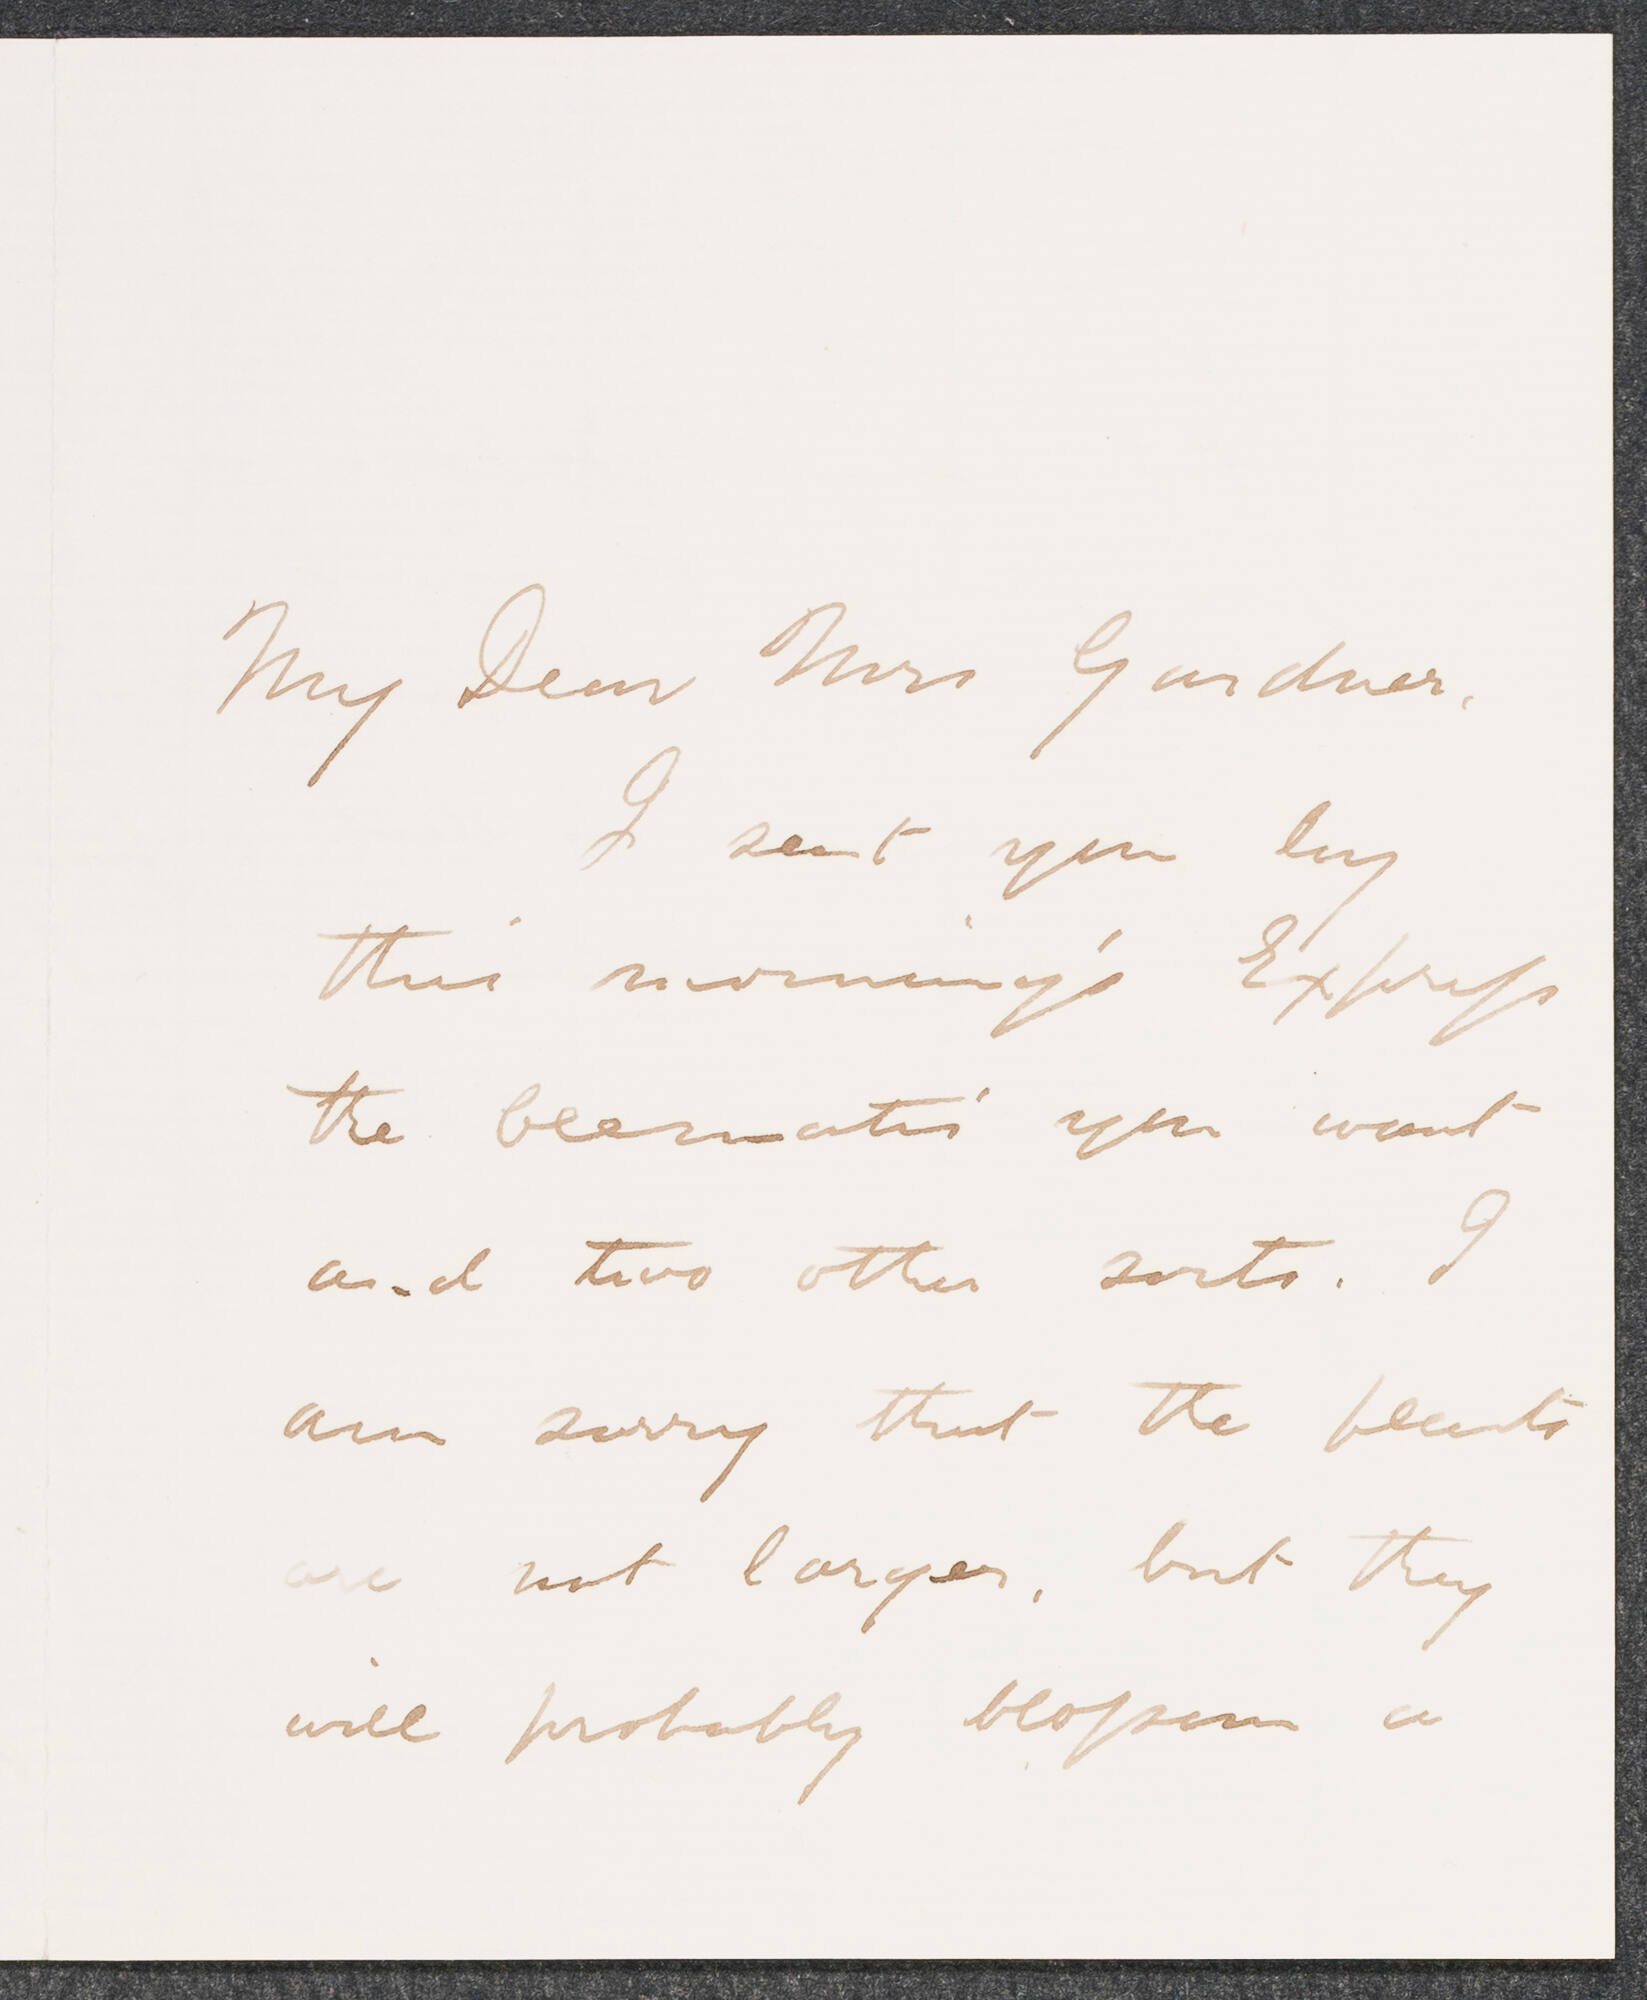 My Dear Mrs Gardner.
I sent you by
this morning's Express
the Clematis you want
and two other sorts. I
am sorry that the plants
are not larger, but they
will probably blossom a